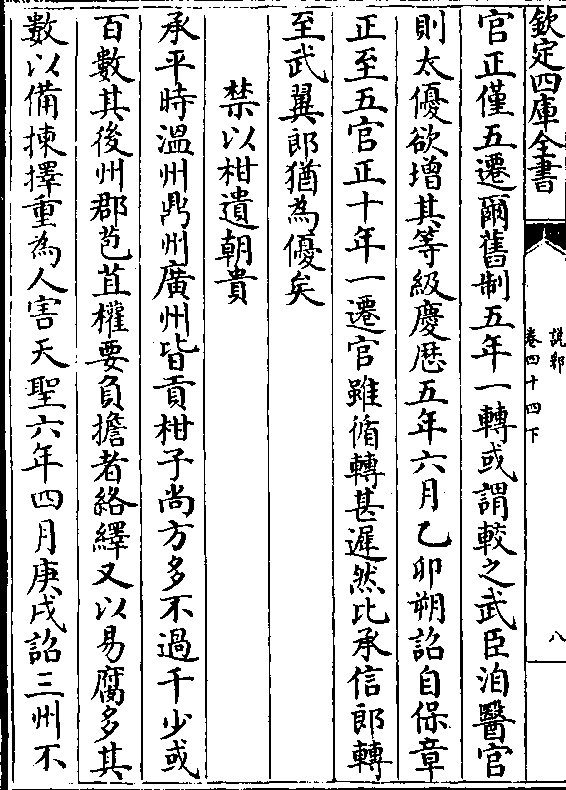 欽定四庫全書
說郛
卷四十四下
八
官正僅五遷爾舊制五年一轉或謂較之武臣洎醫官
則太優欲增其等級慶厯五年六月乙卯朔詔自保章
正至五官正十年一遷官雖循轉甚遲然比承信郎轉
至武翼郎猶為優矣
禁以柑遺朝貴
承平時溫州鼎州廣州皆貢柑子尚方多不過千少或
百數其後州郡苞苴權要負擔者絡繹又以易腐多其
數以備揀擇重為人害天聖六年四月庚戌詔三州不